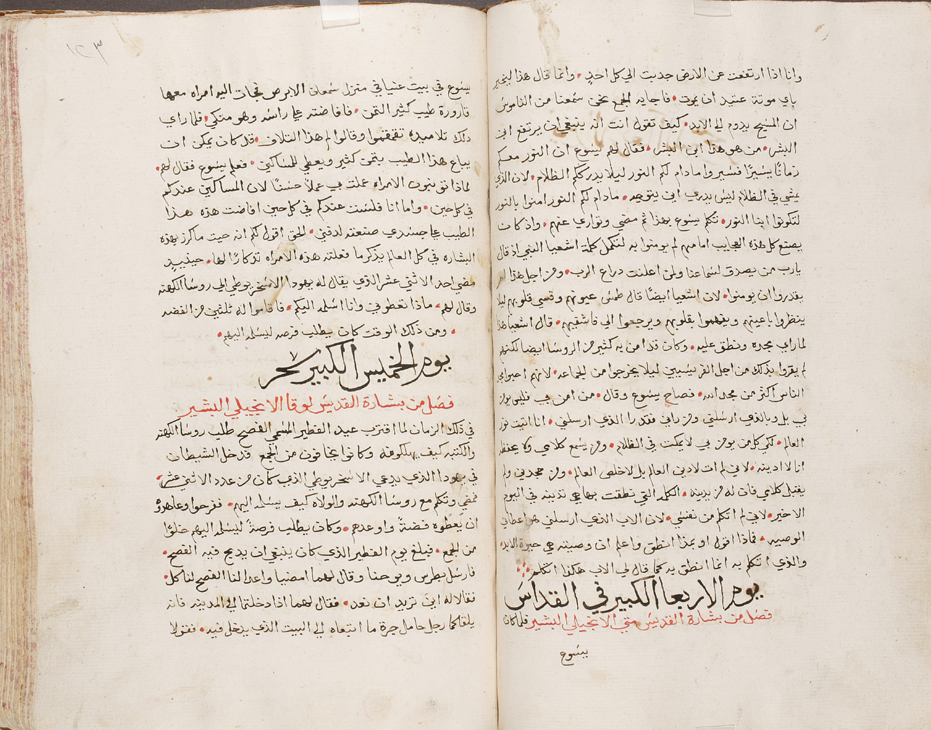 وانا اذا ارتفعت عن الارض جدبت الي كل احدٍ • وانما قال هذا ليخبر
باي موتة عتيد ان يموت • فاجابه الجمع نحن سمعنا من الناموس
ان المسيح يدوم الي الابد • كيف تقول انت انه ينبغي ان يرتفع ابن
البشر • من هو هذا ابن البشر • فقال لهم يسوع ان النور معكم
زمانًا يسيرًا فسيروا مادام لكم النور ليلا يدرككم الظلام • لان الذي
يمشي في الظلام ليس يدري اين يتوجه • مادام لكم النور امنوا بالنور
لتكونوا ابنا النور • تكلم يسوع بهذا ثم مضي وتواري عنهم • واذ كان
يصنع كل هذه العجايب امامهم لم يومنوا به لتكمل كلمة اشعيا النبي اذ قال
يارب من يصدق لسماعنا ولمن اعلنت دراع الرب • ومن اجل هذا لم
يقدروا ان يومنوا • لان اشعيا ايضًا قال طمس عيونهم وقسي قلوبهم ليلا
ينظروا باعينهم ويفهموا بقلوبهم ويرجعوا الي فاشفيهم • قال اشعيا هذا
لما راي مجده ونطق عليه • وكان قد امن به كثير من الروسا ايضا لكنهم
لم يقروا بذلك من اجل الفريسيين ليلا يخرجوا من الجماعه • لانهم احبوا مجد
الناس اكثر من مجد الله • فصاح يسوع وقال • من امن بي فليس يومن
بي بل وبالذي ارسلني ومن راني فقد را الذي ارسلني • انا اتيت نور
العالم • لكي كل من يومن بي لا يمكث في الظلام • ومن يسمع كلامي ولا يحفظه
انا لا ادينه • لاني لم ات لادين العالم بل لاخلص العالم • ومن جحدني ولم
يقبل كلامي فان له من يدينه • الكلمه التي نطقت بها هي تدينه في اليوم
الاخير • لاني لم اتكلم من نفسي • لان الاب الذي ارسلني هو اعطاني
الوصيه • فماذا اقول او بماذا انطق واعلم ان وصيته هي حيوة الابد
والذي اتكلم به انما انطق به كما قال لي الاب هكذا اتكلم
يوم الاربعا الكبير في القداس
فصل من بشارة القديس متي الانجيلي البشير فلما كان
يسوع
١٢٣
يسوع في بيت عنيا في منزل سمعان الابرص فجات اليه امراه معها
قارورة طيب كثير الثمن • فافاضته علي راسه وهو متكي • فلما راي
ذلك تلاميده تقمقموا وقالوا لم هذا التلاف • قد كان يمكن ان
يباع هذا الطيب بثمن كثير ويعطي للمساكين • فعلم يسوع فقال لهم •
لماذا تونبون الامراه عملت بي عملاً حسنًا لان المساكين عندكم
في كل حين • واما انا فلست عندكم في كل حين افاضت هذه هذا
الطيب علي جسدي صنعته لدفني • الحق اقول لكم انه حيث ماكرز بهذه
البشاره في كل العالم يذكر ما فعلته هذه الامراه تذكارًا لها • حينيذٍ
مضي احد الاثني عشر الذي يقال له يهودا الاسخريوطي الي روسا الكهنه
وقال لهم • ماذا تعطوني وانا اسلمه اليكم • فاقاموا له ثلثين من الفضه
• ومن ذلك الوقت كان يطلب فرصه ليسلمه اليهم •
يوم الخميس الكبير سحر
فصل من بشارة القديس لوقا الانجيلي البشير
في ذلك الزمان لما اقترب عيد الفطير المسمي الفصح طلب روسا الكهنه
والكتبه كيف يهلكوه • وكانوا يخافون من الجمع • فدخل الشيطان
في يهودا الذي يدعي الاسخريوطي الذي كان من عدد الاثني عشر •
فمضي وتكلم مع روسا الكهنه والولاه كيف يسلمه اليهم • ففرحوا وعاهدوه
ان يعطوه فضةً واوعدهم • وكان يطلب فرصةً ليسلمه اليهم خلوًا
من الجمع • فبلغ يوم الفطير الذي كان ينبغي ان يدبح فيه الفصح •
فارسل بطرس ويوحنا وقال لهما امضيا واعدا لنا الفصح لناكل •
فقالا له اين تريد ان نعد • فقال لهما اذا دخلتما الي المدينه فانه
يلقاكما رجل حامل جرة ما اتبعاه الي البيت الذي يدخل فيه • فقولا